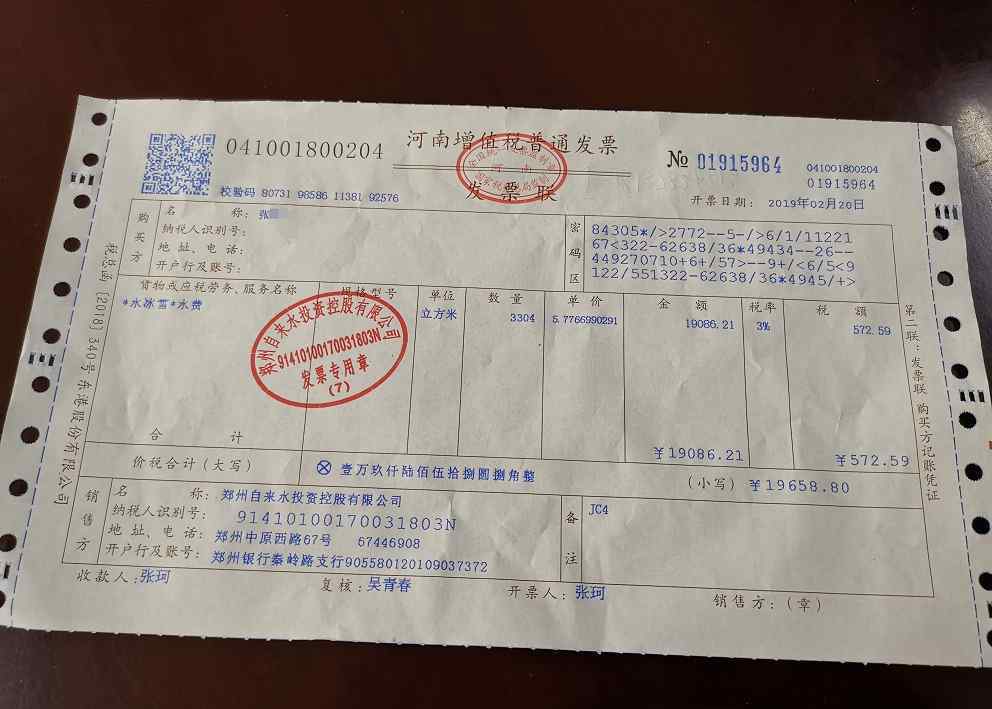 河南增值税普通发票
发票联
041001800204
校验码 80731 98586 11381 92576
№ 01915964
041001800204
01915964
开票日期： 2019年02月20日
购买方
名 称： 张
纳税人识别号：
地 址、电 话：
开户行及账号：
密码区
84305*/>2772--5-/>6/1/11221
67<322-62638/36*49434--26--
449270710+6+/57>--9+/<6/5<9
122/551322-62638/36*4945/+>
货物或应税劳务、服务名称 规格型号 单位 数 量 单 价 金 额 税率 税 额
*水冰雪*水费 立方米 3304 5.7766990291 19086.21 3% 572.59
郑州自来水投资控股有限公司
91410100170031803N
发票专用章
(7)
合 计 ￥19086.21 ￥572.59
价税合计（大写） ⊗ 壹万玖仟陆佰伍拾捌圆捌角整 （小写） ￥19658.80
销售方
名 称： 郑州自来水投资控股有限公司
纳税人识别号： 91410100170031803N
地 址、电 话： 郑州中原西路67号 67446908
开户行及账号： 郑州银行秦岭路支行905580120109037372
备注
JC4
收款人：张珂 复核：吴青春 开票人：张珂 销售方：（章）
税总函〔2018〕340号东港股份有限公司
第二联：发票联 购买方记账凭证